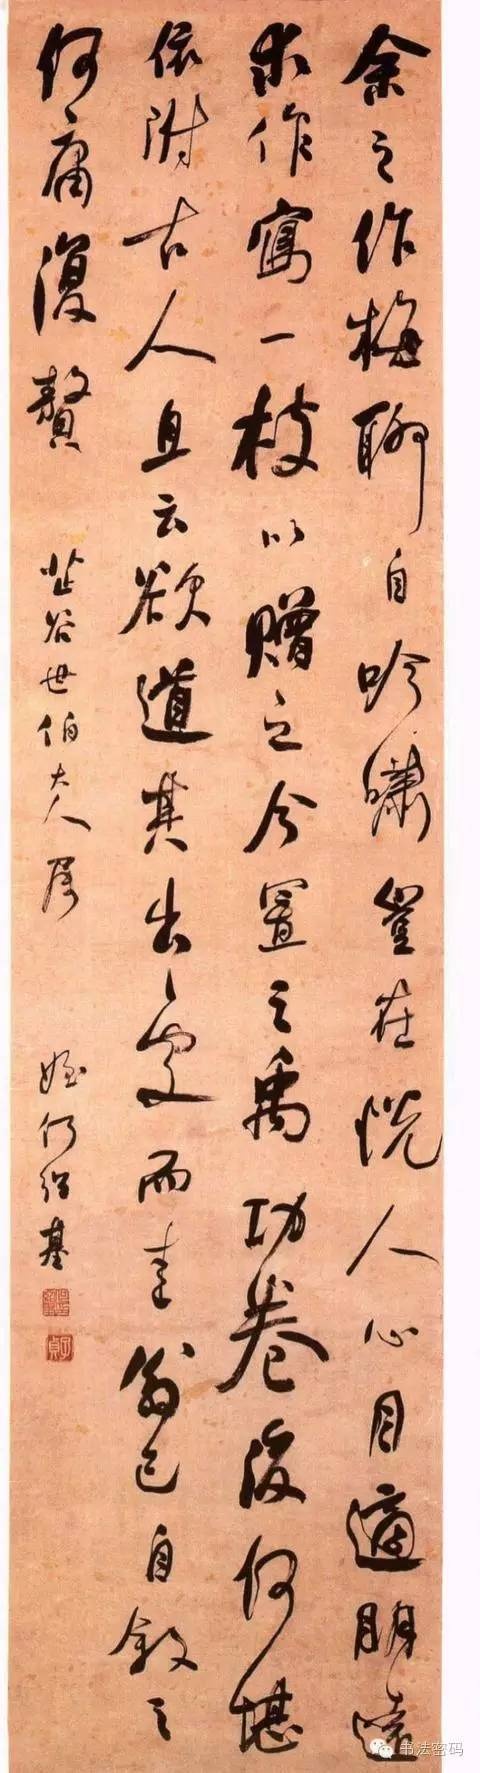 余之作梅聊自吟啸岂在悦人心目适明远
求作写一枝以赠之今置之禹功卷后何堪
依附古人且云欲道其出处而未翁已自叙之
何庸复赘
芷谷世伯大人属
侄何绍基
子贞
书法密码